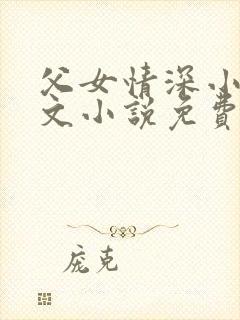 父女情深小
文小説免費
庞克